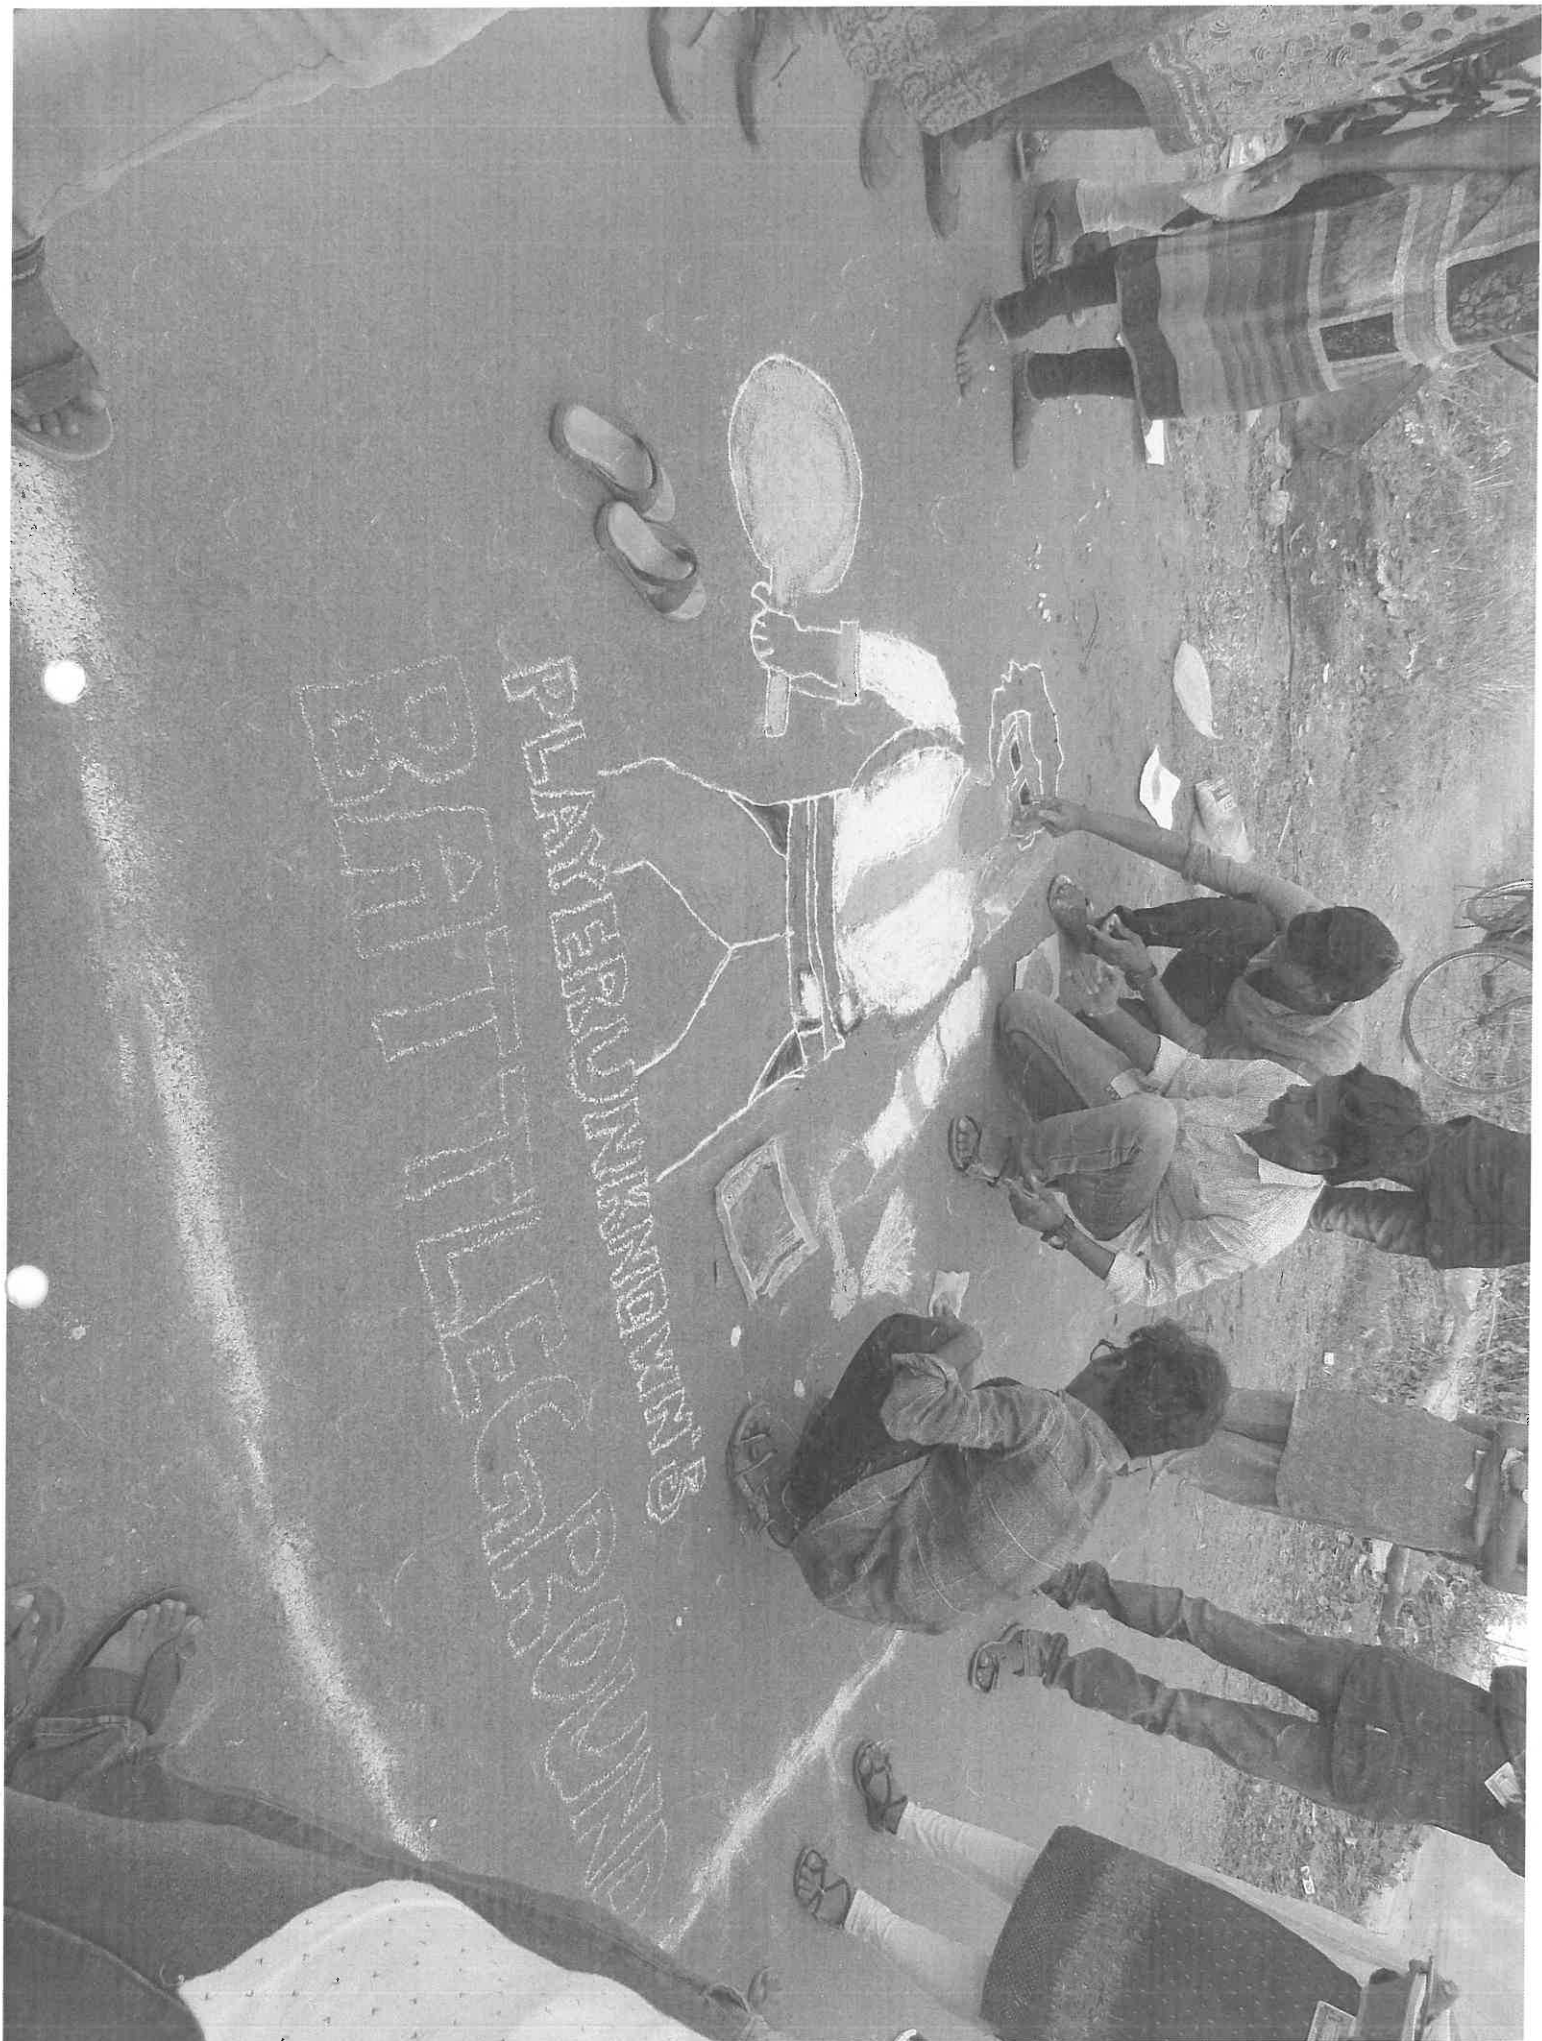 PLAYERUNKNOWN'S
BATTLEGROUND